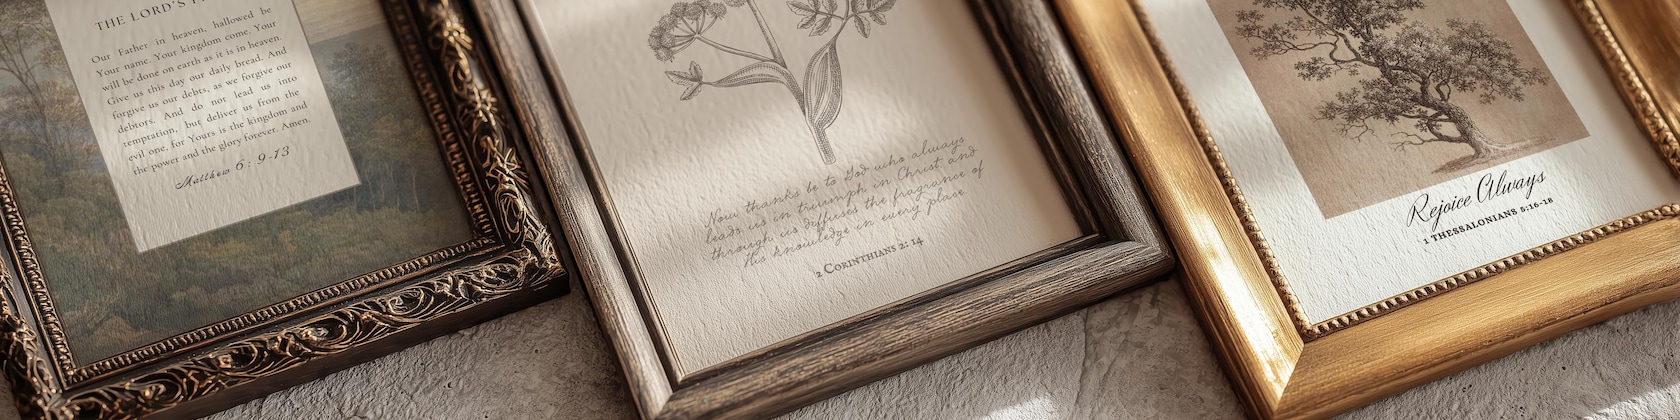 THE LORD'S
Our Father in heaven, hallowed be
Your name. Your kingdom come. Your
will be done on earth as it is in heaven.
Give us this day our daily bread. And
forgive us our debts, as we forgive our
debtors. And do not lead us into
temptation, but deliver us from the
evil one, for Yours is the kingdom and
the power and the glory forever. Amen.
Matthew 6: 9-13
Now thanks be to God who always
leads us in triumph in Christ, and
through us diffuses the fragrance of
His knowledge in every place.
2 CORINTHIANS 2: 14
Rejoice Always
1 THESSALONIANS 5:16-18